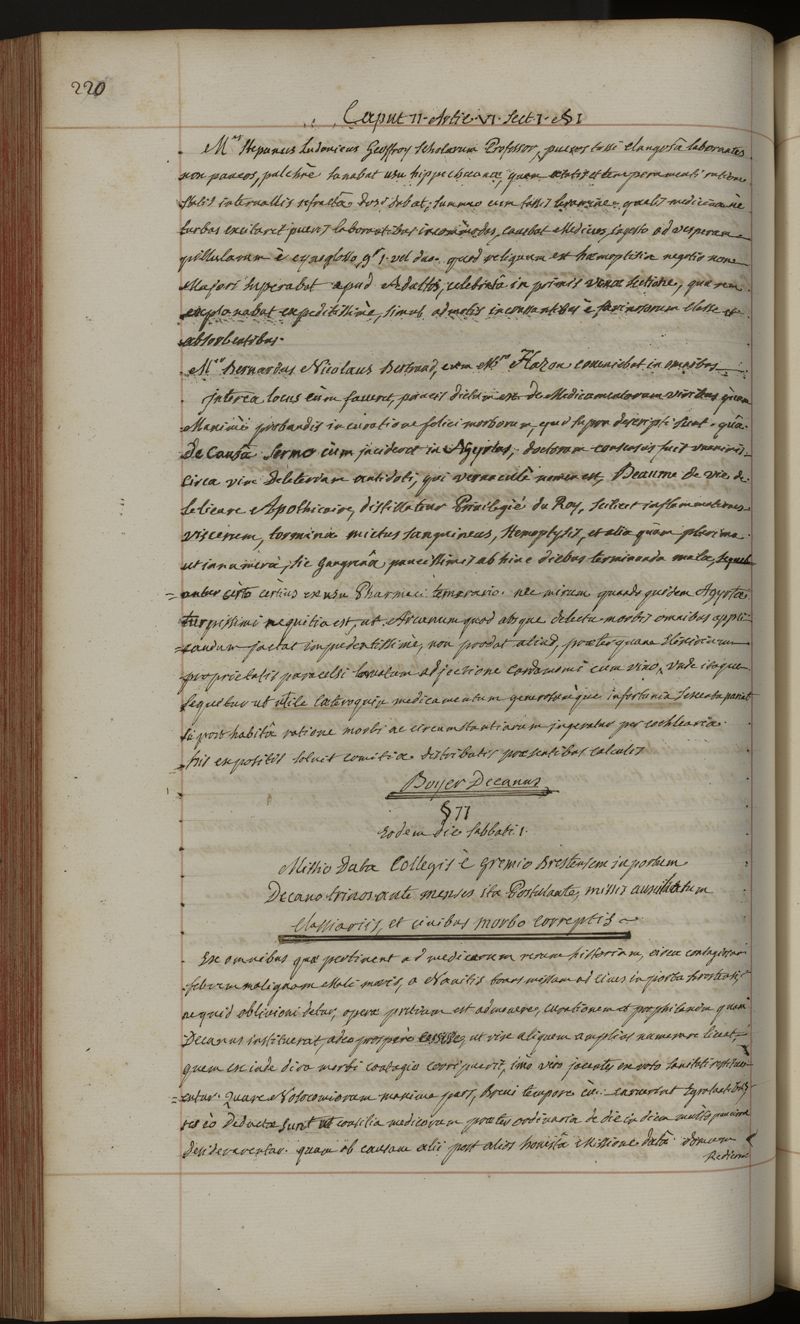 220
Caput II. Artic. VI. Sect I. §I
M.us Stepanus Ludovicus Geoffroy Scholarum Professor, pueros tussi clangosa laborantes
non paucos, pulchrè sanabat usu hippechuanæ, quam ætatis et temperamenti ratione
statis intervallis refracta dosi dabat; summo cum tussis levamine, qualis medicina ne
turbas excitaret pueris laborantibus incommodas, cavebat Medicus, sapto ad vesperam
pillularum è cynoglosso gr. I. vel duo. quod reliquum est hæmoptisia negotio non
Majori superabat apud Adultos, celebrata in primis venæ sectione, quam rem
explanabat expeditissimè, simul admotis incrassantibus è farinosorum classe et
absorbentibus.
M.us Bernardus Nicolaus Bertrand, cum M.ro Hazon conveniebat in omnibus
interea locus cum faveret, paucis dictum est de Medicamentorum viribus quam
Maximè probandis in curatione felici morborum, qui supra descripti sunt. quâ
de Causâ Sermo cùm incideret in Agyrtas, doctorum consensus fuit unanimis
circa vim deleteriam antidoti, qui vernaculè nomen est, Beaume de vie de
Lelievre Apothicaire, distillateur Privilegié du Roy, scilicet inflammationes
viscerum, tormina mictus sanguineus, Hemoptysis, et alia quàm plurima
ut innumera, sic Gangrænâ paucissimis ab hinc diebus terminanda mala, sequeb
antur certo certius ex usu Pharmaci temerario. nec mirum quando quidem Agyrtæ
turpissimi nequitia est, ut Arcanum quod absque delectu morbis omnibus appli
candum jactat impudentissimè, non prodat aliud, præter quam Elixirium
proprietatis paracelsi adjectione Cardamomi cum vino, unde itaque
sequebur ut utile cæteroquin medicamentum generosumque infortunia sexcenta pariat
si post habitâ ratione morbi ac circumstantiarum ingeratur per cochlearia.
his expositis solvit comitia distributis præsentibus calculis
Boyer Decanus
§ II
Eodem die sabbati 1.
Missio Data Collegis è gremio Brestensem in portum
Decano trinos ante menses ita Postulante, missis auxiliatum
Classiariis, et civibus morbo correptis
Ex omnibus quæ pertinent ad medicarum rerum historiam, circa contagiosam
febrem malignam mali maris, a Nautis transmissam ad cives in portu brestensi,
ne quid oblivioni detur, operæ pretium est admonere, curationem et prophilaxim quam
Decanus instituerat, adeo prosperè cessisse, ut vix aliquem amplius numerare liceat,
quem exinde dira morbi contagio corripuerit, imò vero jacentes ex voto sanitati restitue
rentur. Quare Nosocomiorum maxima pars, Brevi tempore Ægrotantibus
res eò Deductæ sunt ut consilia medicorum præter ordinaria de die in diem multò
desiderarentur. quam ob causam alii post alios honestâ Missione datâ domum
Redierun